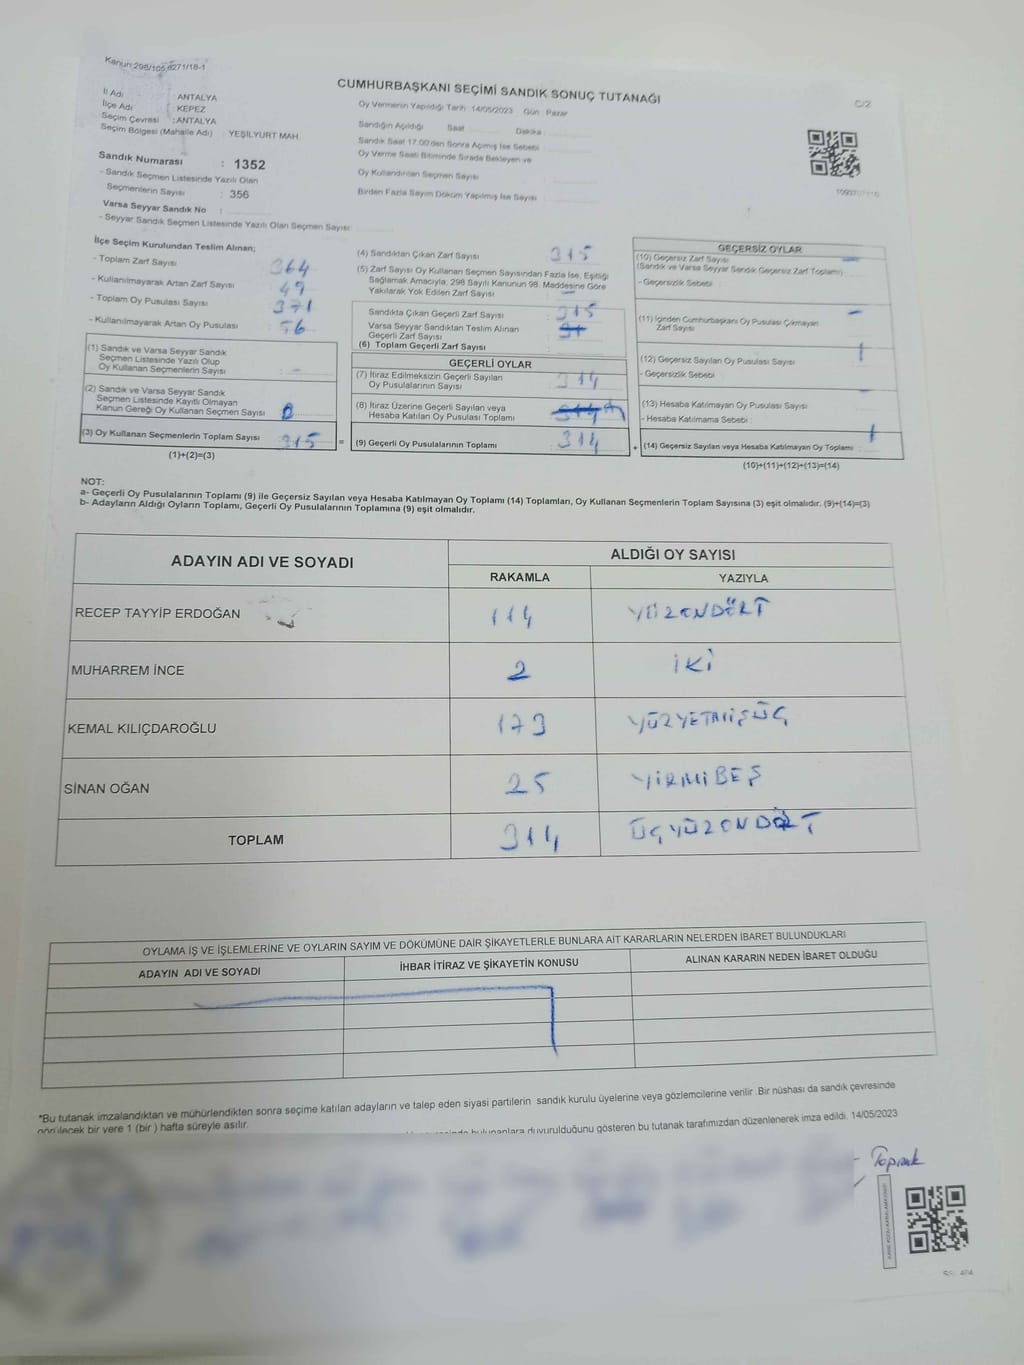 Kanun:298/105,6271/18-1
CUMHURBAŞKANI SEÇİMİ SANDIK SONUÇ TUTANAĞI
C/2
İl Adı : ANTALYA
İlçe Adı : KEPEZ
Seçim Çevresi : ANTALYA
Seçim Bölgesi (Mahalle Adı) : YEŞİLYURT MAH
Sandık Numarası : 1352
- Sandık Seçmen Listesinde Yazılı Olan
Seçmenlerin Sayısı : 356
Varsa Seyyar Sandık No :
- Seyyar Sandık Seçmen Listesinde Yazılı Olan Seçmen Sayısı
Oy Vermenin Yapıldığı Tarih 14/05/2023 Gün : Pazar
Sandığın Açıldığı Saat Dakika
Sandık Saat 17.00'den Sonra Açımış İse Sebebi
Oy Verme Saati Bitiminde Sırada Bekleyen ve
Oy Kullandırılan Seçmen Sayısı
Birden Fazla Sayım Döküm Yapılmış İse Sayısı
İlçe Seçim Kurulundan Teslim Alınan;
- Toplam Zarf Sayısı : 364
- Kullanılmayarak Artan Zarf Sayısı : 49
- Toplam Oy Pusulası Sayısı : 371
- Kullanılmayarak Artan Oy Pusulası : 56
(1) Sandık ve Varsa Seyyar Sandık
Seçmen Listesinde Yazılı Olup
Oy Kullanan Seçmenlerin Sayısı : -
(2) Sandık ve Varsa Seyyar Sandık
Seçmen Listesinde Kayıtlı Olmayan
Kanun Gereği Oy Kullanan Seçmen Sayısı : 0
(3) Oy Kullanan Seçmenlerin Toplam Sayısı : 315
(1)+(2)=(3)
(4) Sandıktan Çıkan Zarf Sayısı : 315
(5) Zarf Sayısı Oy Kullanan Seçmen Sayısından Fazla İse, Eşitliği
Sağlamak Amacıyla; 298 Sayılı Kanunun 98. Maddesine Göre
Yakılarak Yok Edilen Zarf Sayısı : -
Sandıkta Çıkan Geçerli Zarf Sayısı : 315
Varsa Seyyar Sandıktan Teslim Alınan
Geçerli Zarf Sayısı
(6) Toplam Geçerli Zarf Sayısı
GEÇERLİ OYLAR
(7) İtiraz Edilmeksizin Geçerli Sayılan
Oy Pusulalarının Sayısı : 314
(8) İtiraz Üzerine Geçerli Sayılan veya
Hesaba Katılan Oy Pusulası Toplamı
= (9) Geçerli Oy Pusulalarının Toplamı : 314
GEÇERSİZ OYLAR
(10) Geçersiz Zarf Sayısı : -
(Sandık ve Varsa Seyyar Sandık Geçersiz Zarf Toplamı)
- Geçersizlik Sebebi :
(11) İçinden Cumhurbaşkanı Oy Pusulası Çıkmayan : -
Zarf Sayısı
(12) Geçersiz Sayılan Oy Pusulası Sayısı : 1
- Geçersizlik Sebebi
(13) Hesaba Katılmayan Oy Pusulası Sayısı : -
- Hesaba Katılmama Sebebi :
+ (14) Geçersiz Sayılan veya Hesaba Katılmayan Oy Toplamı : 1
(10)+(11)+(12)+(13)=(14)
NOT:
a- Geçerli Oy Pusulalarının Toplamı (9) ile Geçersiz Sayılan veya Hesaba Katılmayan Oy Toplamı (14) Toplamları, Oy Kullanan Seçmenlerin Toplam Sayısına (3) eşit olmalıdır. (9)+(14)=(3)
b- Adayların Aldığı Oyların Toplamı, Geçerli Oy Pusulalarının Toplamına (9) eşit olmalıdır.
ADAYIN ADI VE SOYADI ALDIĞI OY SAYISI
RAKAMLA YAZIYLA
RECEP TAYYİP ERDOĞAN 114 YÜZONDÖRT
MUHARREM İNCE 2 İKİ
KEMAL KILIÇDAROĞLU 173 YÜZYETMİŞÜÇ
SİNAN OĞAN 25 YİRMİBEŞ
TOPLAM 314 ÜÇYÜZONDÖRT
OYLAMA İŞ VE İŞLEMLERİNE VE OYLARIN SAYIM VE DÖKÜMÜNE DAİR ŞİKAYETLERLE BUNLARA AİT KARARLARIN NELERDEN İBARET BULUNDUKLARI
ADAYIN ADI VE SOYADI İHBAR İTİRAZ VE ŞİKAYETİN KONUSU ALINAN KARARIN NEDEN İBARET OLDUĞU
*Bu tutanak imzalandıktan ve mühürlendikten sonra seçime katılan adayların ve talep eden siyasi partilerin sandık kurulu üyelerine veya gözlemcilerine verilir .Bir nüshası da sandık çevresinde
görülecek bir yere 1 (bir ) hafta süreyle asılır.
bulunanlara duyurulduğunu gösteren bu tutanak tarafımızdan düzenlenerek imza edildi. 14/05/2023
Toprak